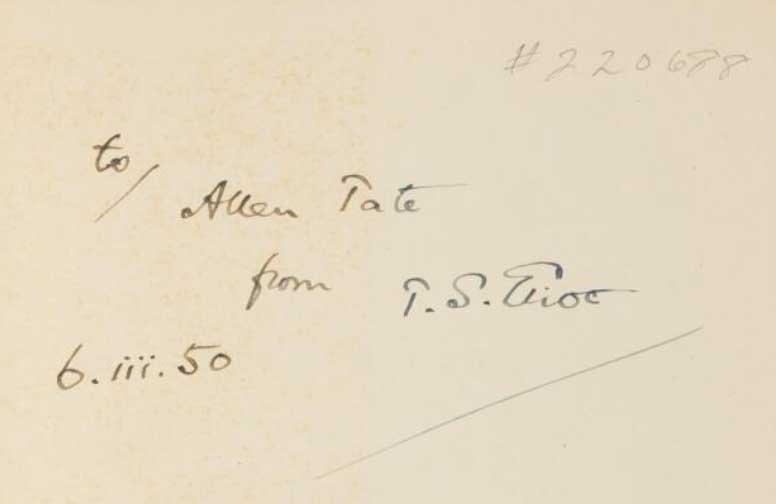 #220678
to/
Allen Tate
from T. S. Eliot
6.iii.50